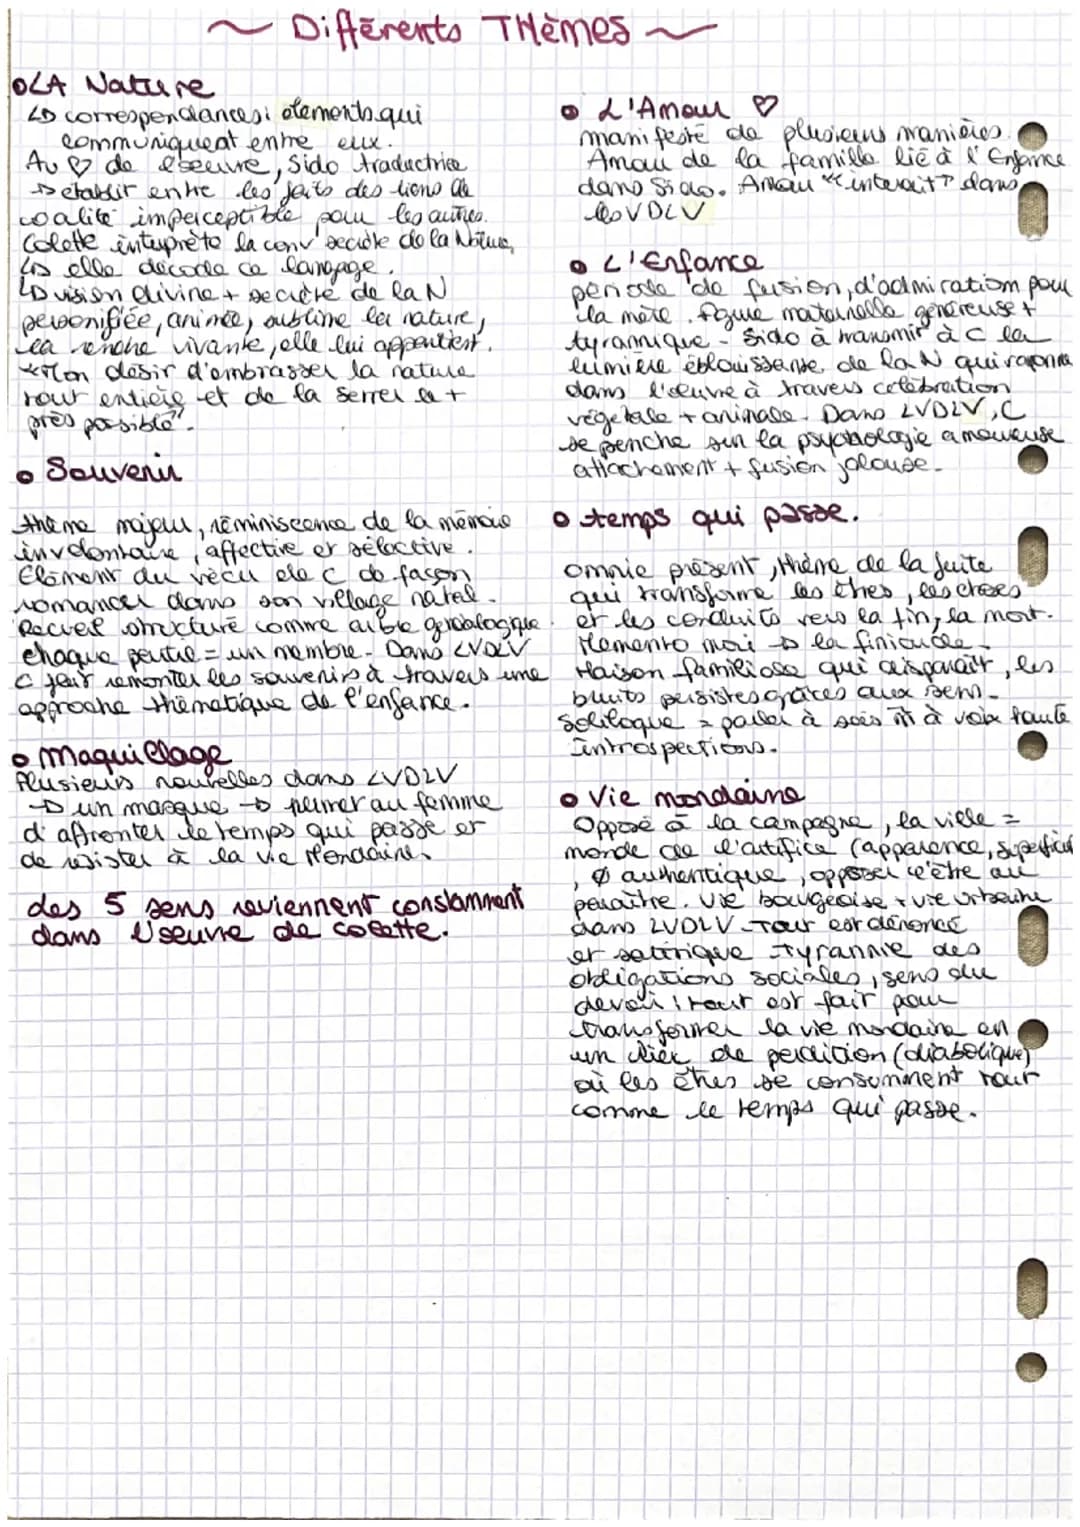 ~ Différents THèmes ~
• LA Nature
↳ correspondances: éléments qui
communiquent entre eux.
Au ♡ de l'oeuvre, Sido traductrice
→ établir entre les faits des liens de
coalité imperceptible pour les autres.
Colette interprète la conv secrète de la Nature,
↳ elle décode ce langage.
↳ vision divine + secrète de la N
personifiée, animée, sublime la nature,
la rendre vivante, elle lui appartient.
"Mon désir d'embrasser la nature
tout entière et de la serrer le +
près possible".
• Souvenir
thème majeur, réminiscence de la mémoire
involontaire, affective et sélective.
Elément du vécu de C de façon
romancer dans son village natal.
Recueil structuré comme arbre généalogique
chaque partie = un membre. Dans LVDLV
C fait remonter les souvenirs à travers une
approche thématique de l'enfance.
• Maquillage
Plusieurs nouvelles dans LVDLV
→ un masque → permet au femme
d'affronter le temps qui passe et
de résister à la vie Mondaine.
des 5 sens reviennent constamment
dans l'oeuvre de colette.
• L'Amour ♡
manifesté de plusieurs manières.
Amour de la famille lié à l'Enfance
dans Sido. Amour "interdit" dans
les VDLV
• L'Enfance
période de fusion, d'admiration pour
la mère. figure maternelle généreuse +
tyrannique - Sido à transmir à C la
lumière éblouissante de la N qui rayonne
dans l'oeuvre à travers célébration
végétale + animale. Dans LVDLV, C
se penche sur la psychologie amoureuse
attachement + fusion jalouse.
• temps qui passe.
omnie présent, thème de la fuite
qui transforme les êtres, les choses
et les conduits vers la fin, la mort.
Memento mori → la finitude.
Maison familiale qui disparaît, les
bruits persistes grâces aux sens.
Soliloque = parler à soi à voix haute
Introspections.
• Vie mondaine
Opposé à la campagne, la ville =
monde de l'artifice (apparence, superficiel
, Ø authentique, opposer l'être au
paraître. Vie bourgeoise + vie urbaine
dans LVDLV. Tout est dénoncé
et satirique tyrannie des
obligations sociales, sens du
devoir: tout est fait pour
transformer la vie mondaine en
un lieu de perdition (diabolique)
où les êtres se consumment tout
comme le temps qui passe.